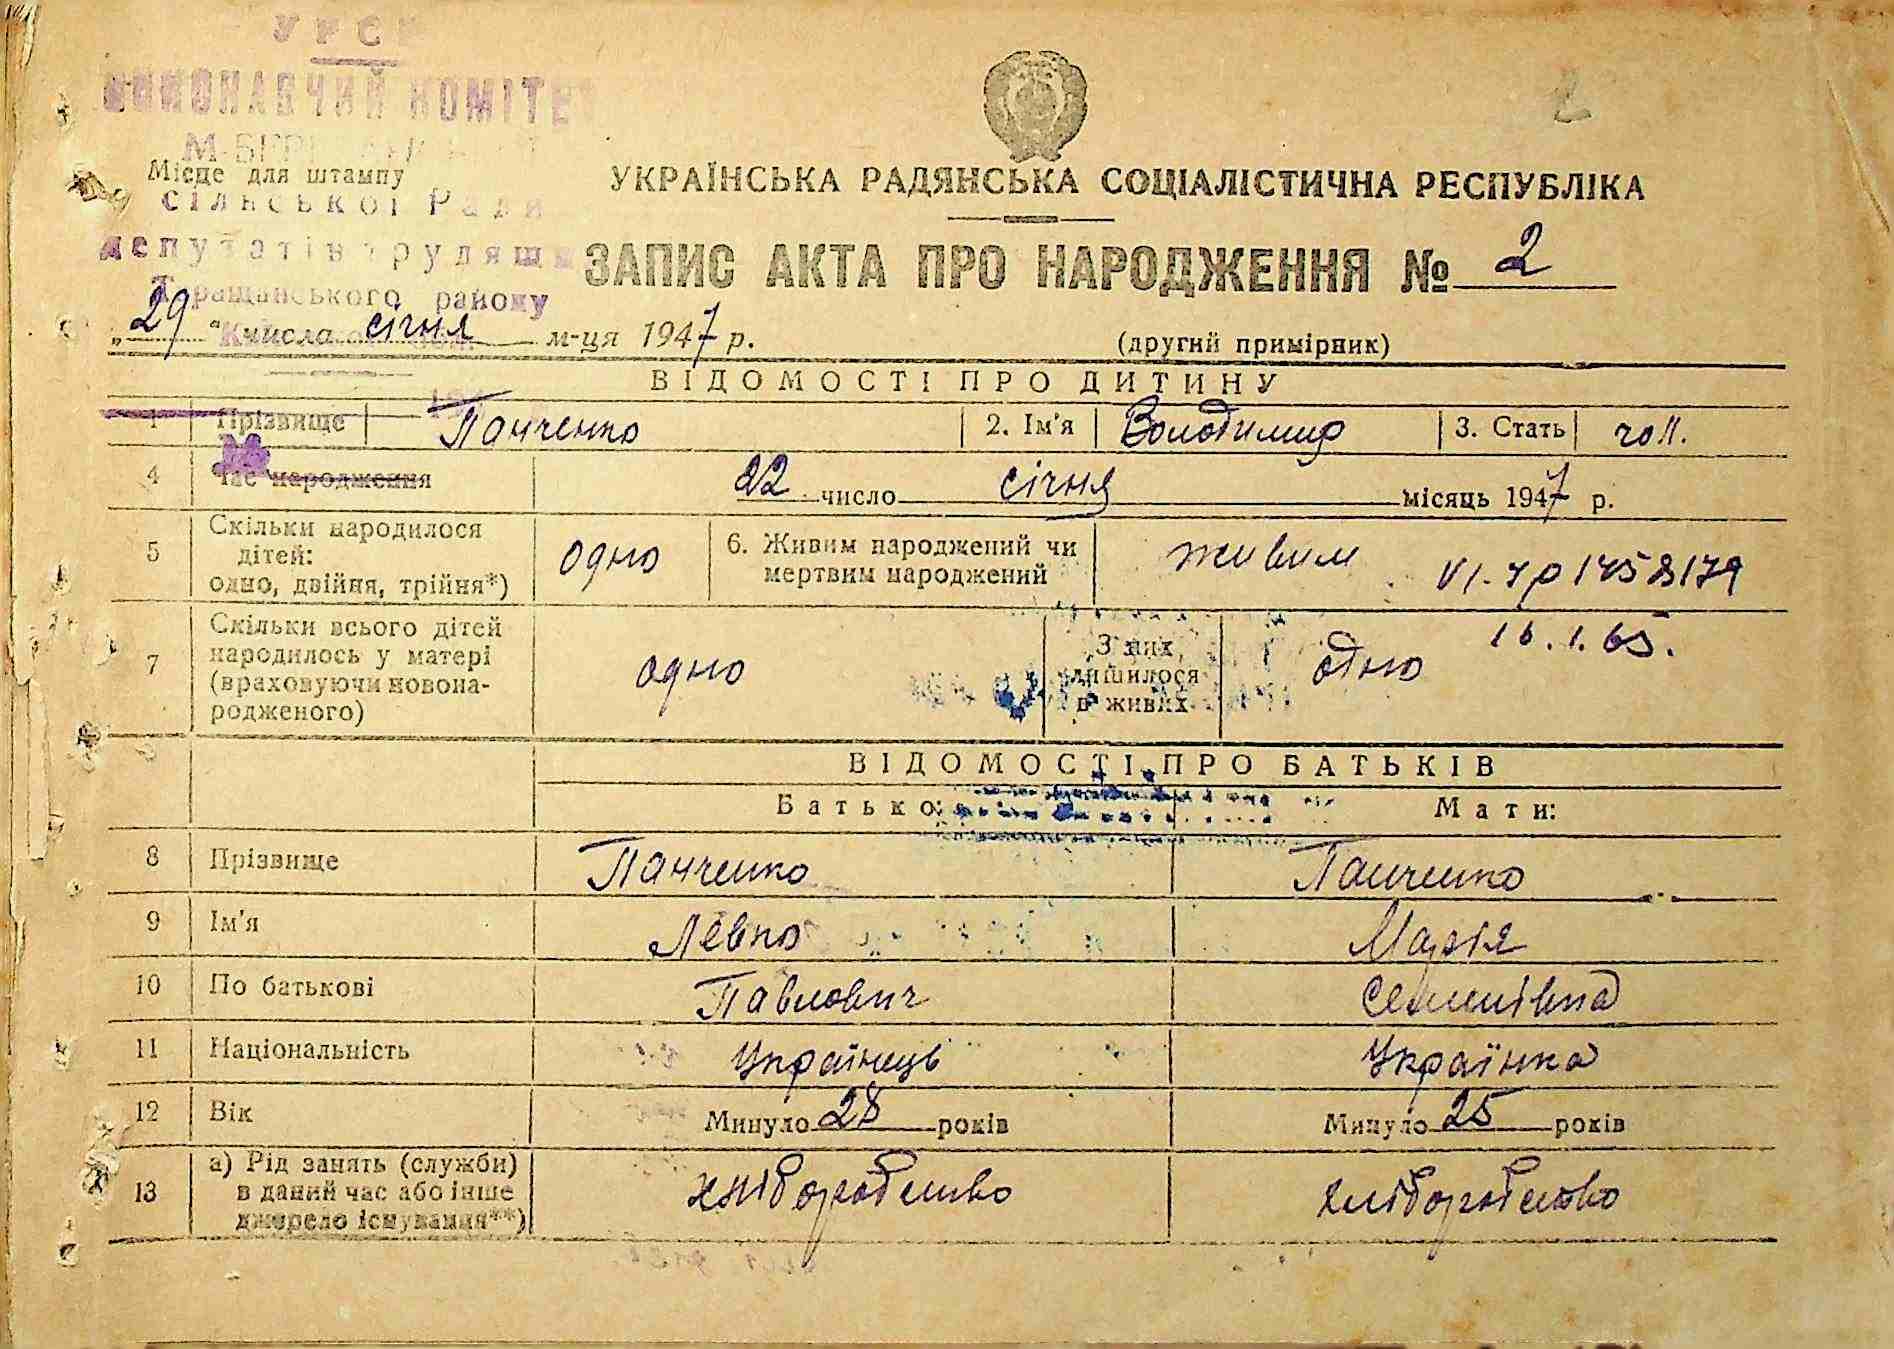 УРСР
ВИКОНАВЧИЙ КОМІТЕТ
Місце для штампу
сільської Ради
депутатів трудящих
Таращанського району
2
УКРАЇНСЬКА РАДЯНСЬКА СОЦІАЛІСТИЧНА РЕСПУБЛІКА
ЗАПИС АКТА ПРО НАРОДЖЕННЯ № 2
„29" числа січня м-ця 1947 р.
(другий примірник)
ВІДОМОСТІ ПРО ДИТИНУ
1 Прізвище Панченко 2. Ім'я Володимир 3. Стать чол.
4 Час народження 22 число січня місяць 1947 р.
5 Скільки народилося дітей: одно, двійня, трійня*) одно 6. Живим народжений чи мертвим народжений живим
VI-УР 1458179
16.1.65.
7 Скільки всього дітей народилось у матері (враховуючи новонародженого) одно З них лишилося в живих одно
ВІДОМОСТІ ПРО БАТЬКІВ
Батько: Мати:
8 Прізвище Панченко Панченко
9 Ім'я Левко Марія
10 По батькові Павлович Семенівна
11 Національність Українець Українка
12 Вік Минуло 28 років Минуло 25 років
13 а) Рід занять (служби) в даний час або інше джерело існування**) хліборобство хліборобство